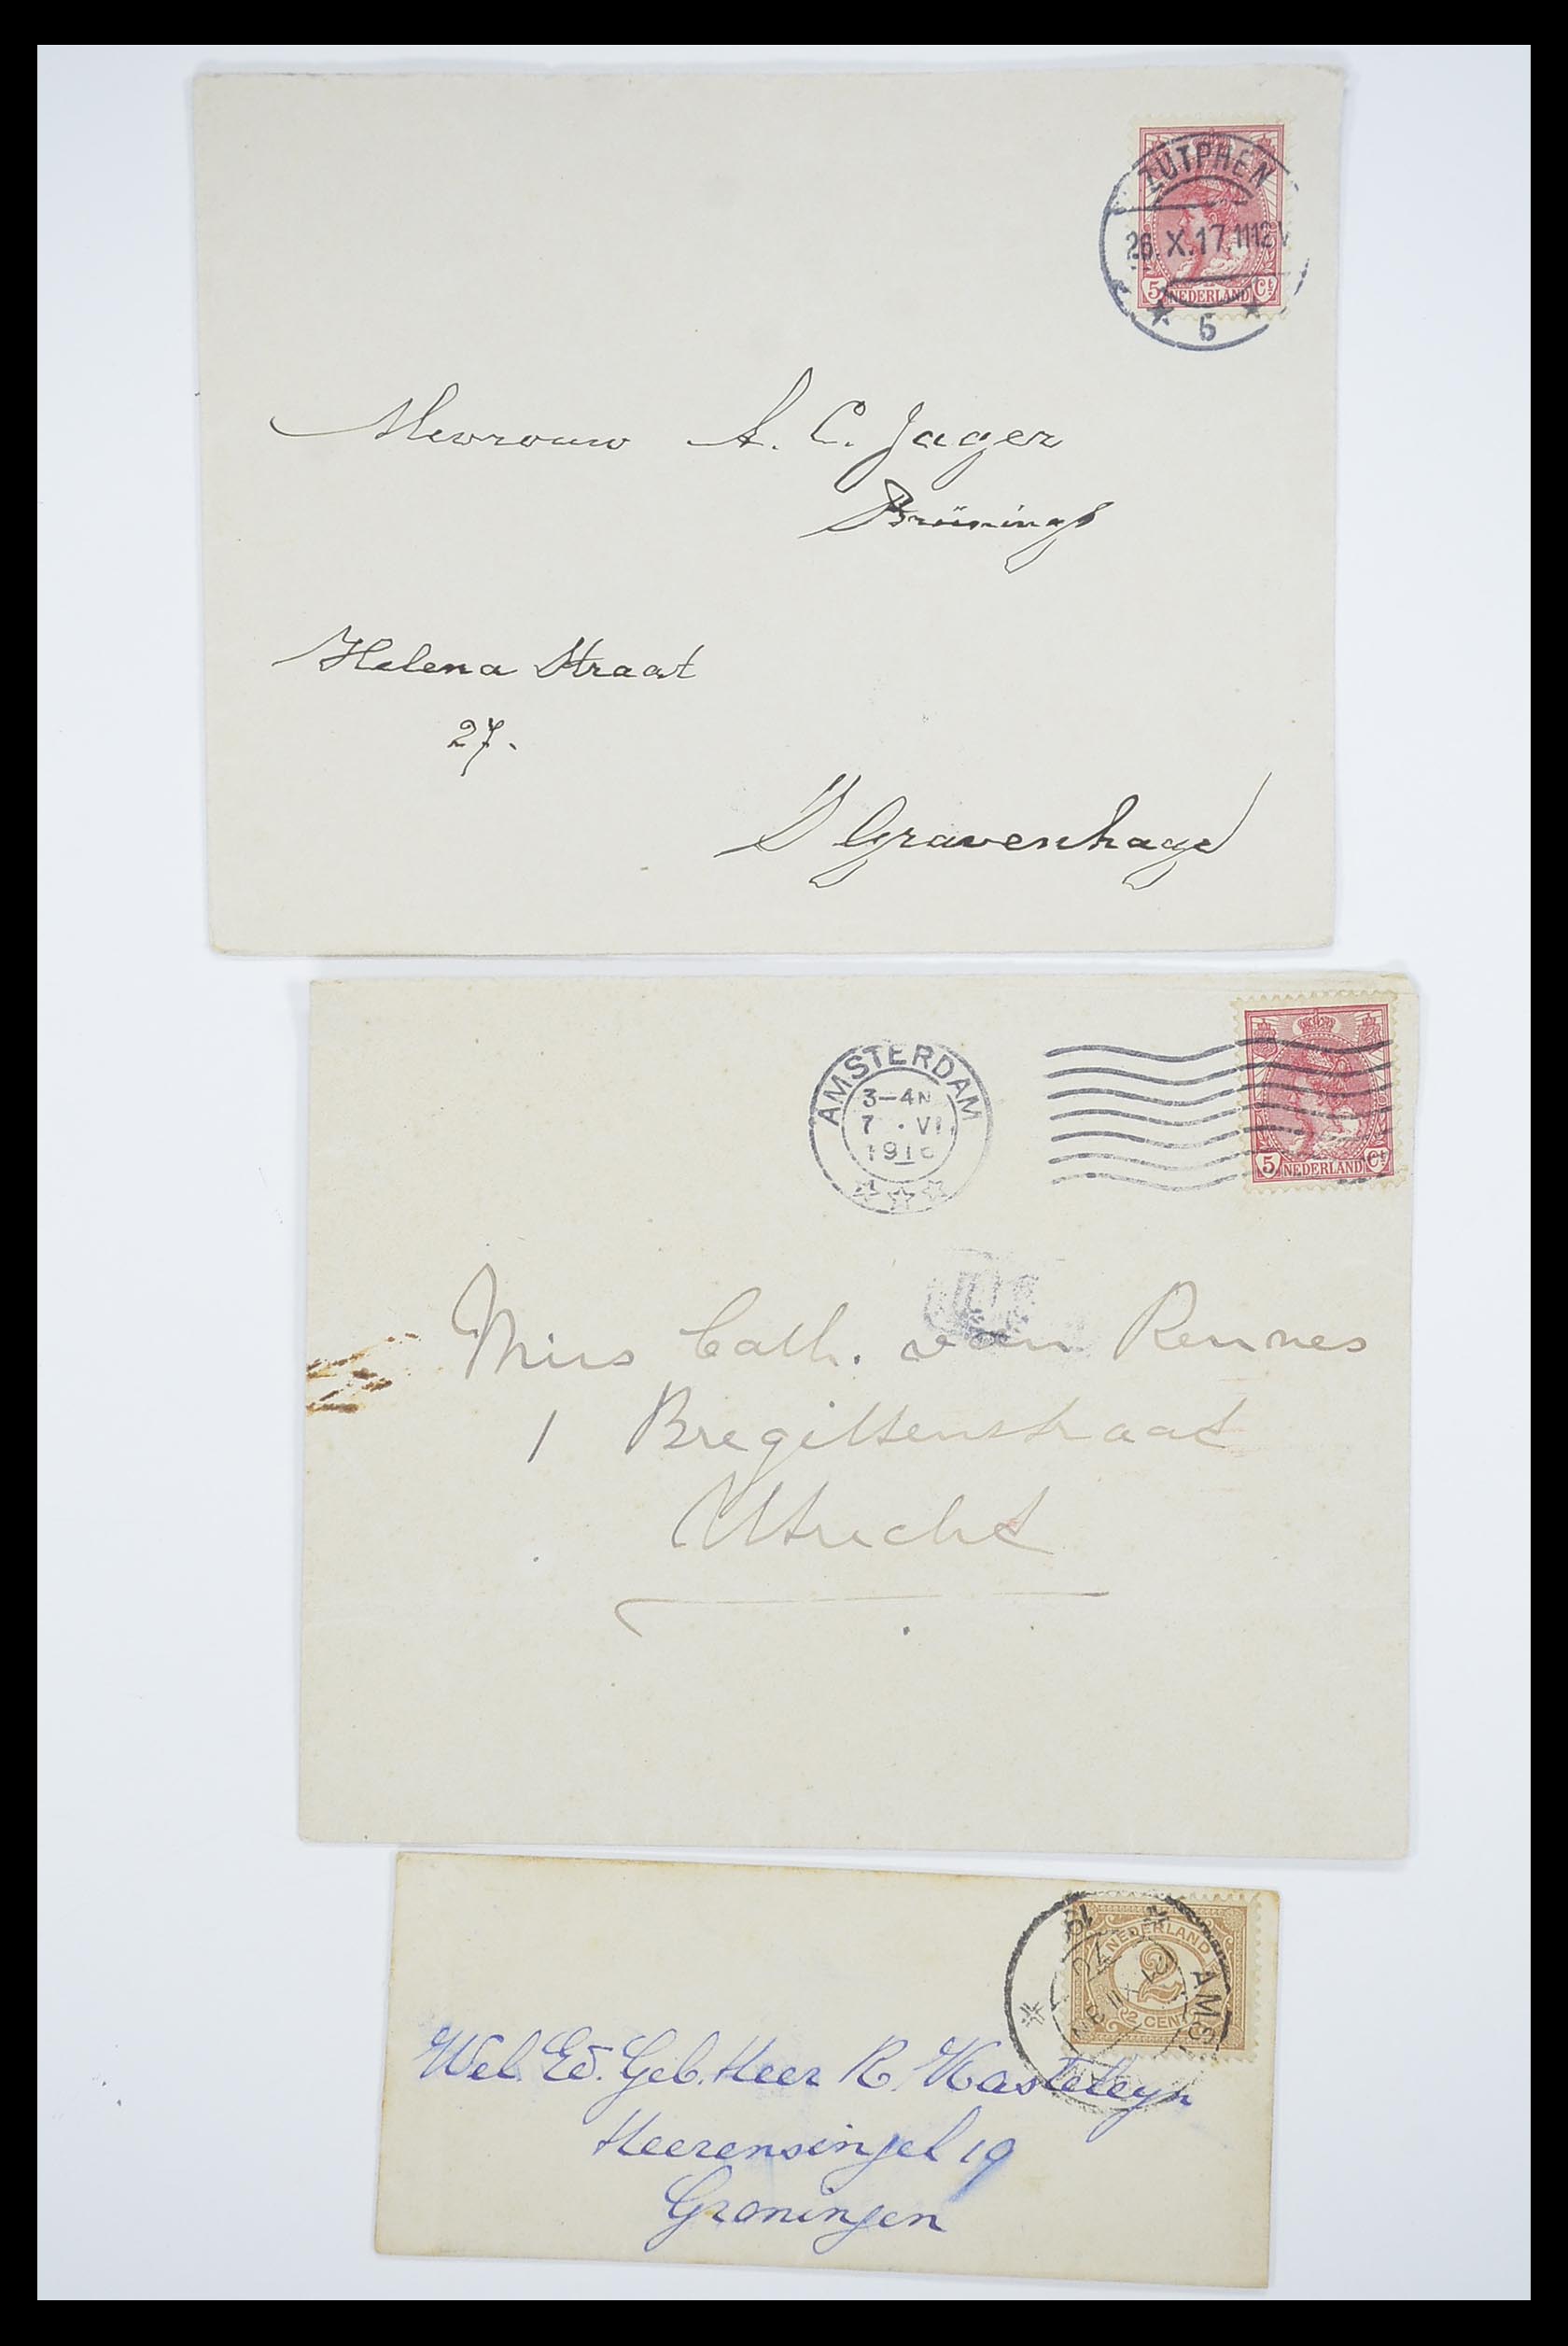 ZUTPHEN
26.X.17.1112V
5
5 NEDERLAND Ct
Mevrouw A. C. Jager
Brünings
Helena Straat
27.
S Gravenhage
AMSTERDAM
3-4N
7 . VI
191
5 NEDERLAND Ct
Miss Cath. van Rennes
1 Bregittenstraat
Utrecht
NEDERLAND
2
2 CENT
AMS
Wel. Ed. Geb. Heer R. Kasteleyn
Heerensingel 19
Groningen